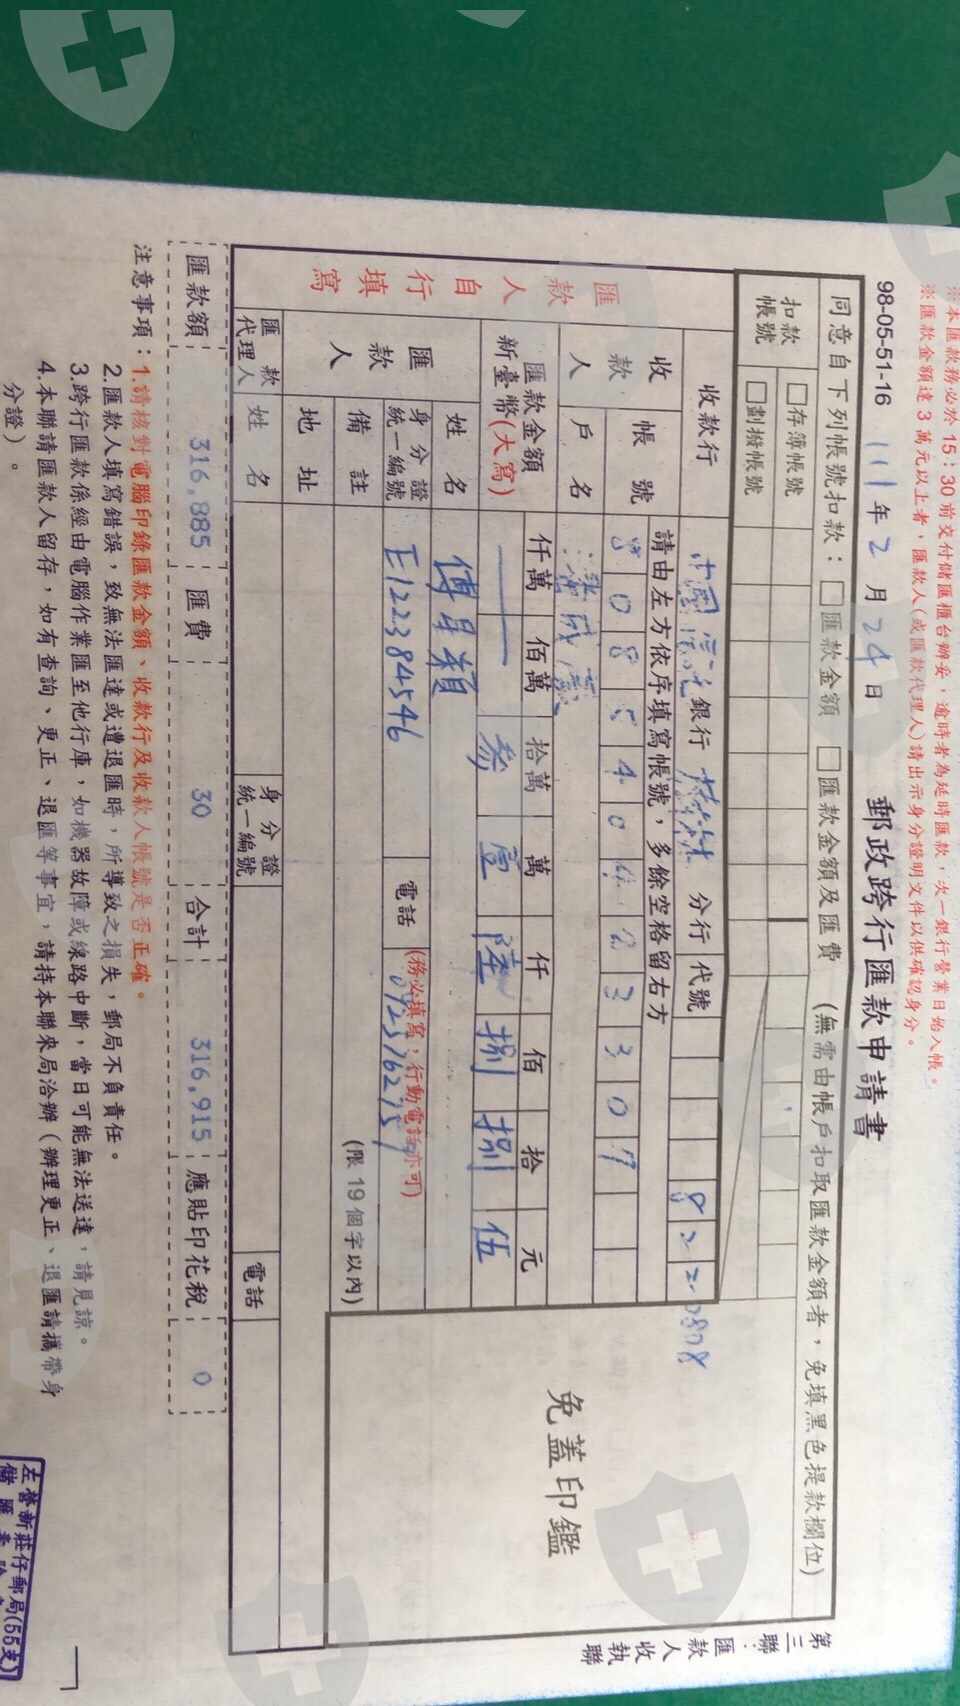 ※本匯款務必於15:30前交付儲匯櫃台辦妥，逾時者為延時匯款，次一銀行營業日始入帳。
※匯款金額達3萬元以上者，匯款人(或匯款代理人)請出示身分證明文件以供確認身分。
98-05-51-16 111年2月24日 郵政跨行匯款申請書
同意自下列帳號扣款：□匯款金額 □匯款金額及匯費 (無需由帳戶扣取匯款金額者，免填黑色提款欄位)
扣款帳號 □存簿帳號
□劃撥帳號
匯款人自行填寫
收款行 中國信託銀行 分行 代號 822 0808
收款人
帳號 請由左方依序填寫帳號，多餘空格留右方
戶名
匯款金額 新臺幣(大寫) 仟萬 佰萬 拾萬 萬 仟 佰 拾 元
參 壹 陸 捌 捌 伍
匯款人
姓名
身分證統一編號 E122384546 電話 (務必填寫；行動電話亦可)
備註 (限19個字以內)
地址
匯款代理人 姓名 身分證統一編號 電話
免蓋印鑑
第三聯：匯款人收執聯
匯款額 316,885 匯費 30 合計 316,915 應貼印花稅 0
注意事項：1.請核對電腦印錄匯款金額、收款行及收款人帳號是否正確。
2.匯款人填寫錯誤，致無法匯達或遭退匯時，所導致之損失，郵局不負責任。
3.跨行匯款係經由電腦作業匯至他行庫，如機器故障或線路中斷，當日可能無法送達，請見諒。
4.本聯請匯款人留存，如有查詢、更正、退匯等事宜，請持本聯來局洽辦（辦理更正、退匯請攜帶身
分證）。
左營新莊仔郵局(55支)